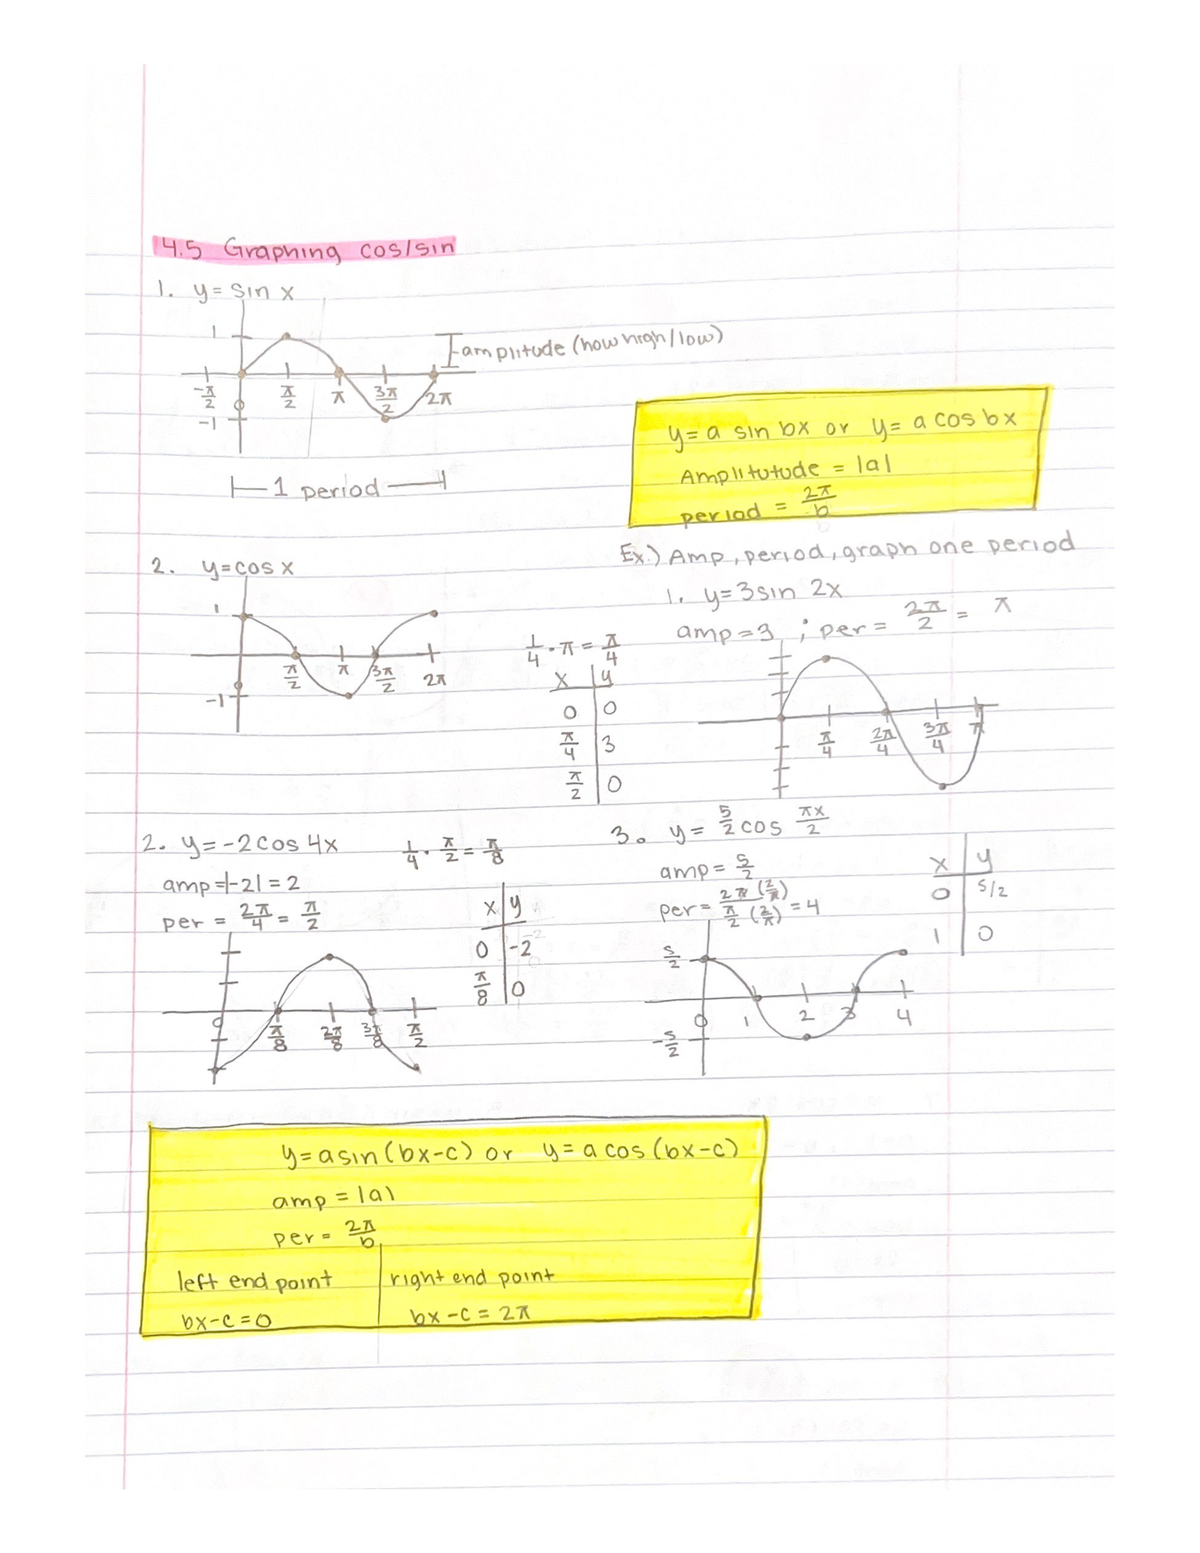 4.5 Graphing cos/sin
1. y = sin x
1
amplitude (how high/low)
-π/2 0 π/2 π 3π/2 2π
-1
1 period
y = a sin bx or y = a cos bx
Amplitutude = |a|
period = 2π/b
2. y = cos x
1
π/2 π 3π/2 2π
-1
Ex.) Amp, period, graph one period
1. y = 3 sin 2x
amp = 3 ; per = 2π/2 = π
1/4 · π = π/4
x | y
0 | 0
π/4 | 3
π/2 | 0
π/4 2π/4 3π/4 π
2. y = -2 cos 4x
1/4 · π/2 = π/8
amp = |-2| = 2
per = 2π/4 = π/2
x | y
0 | -2
π/8 | 0
0 π/8 2π/8 3π/8 π/2
3. y = 5/2 cos πx/2
amp = 5/2
per = 2π (2/π) / π/2 (2/π) = 4
x | y
0 | 5/2
1 | 0
5/2
0 1 2 3 4
-5/2
y = a sin (bx-c) or y = a cos (bx-c)
amp = |a|
per = 2π/b
left end point | right end point
bx-c = 0 | bx-c = 2π